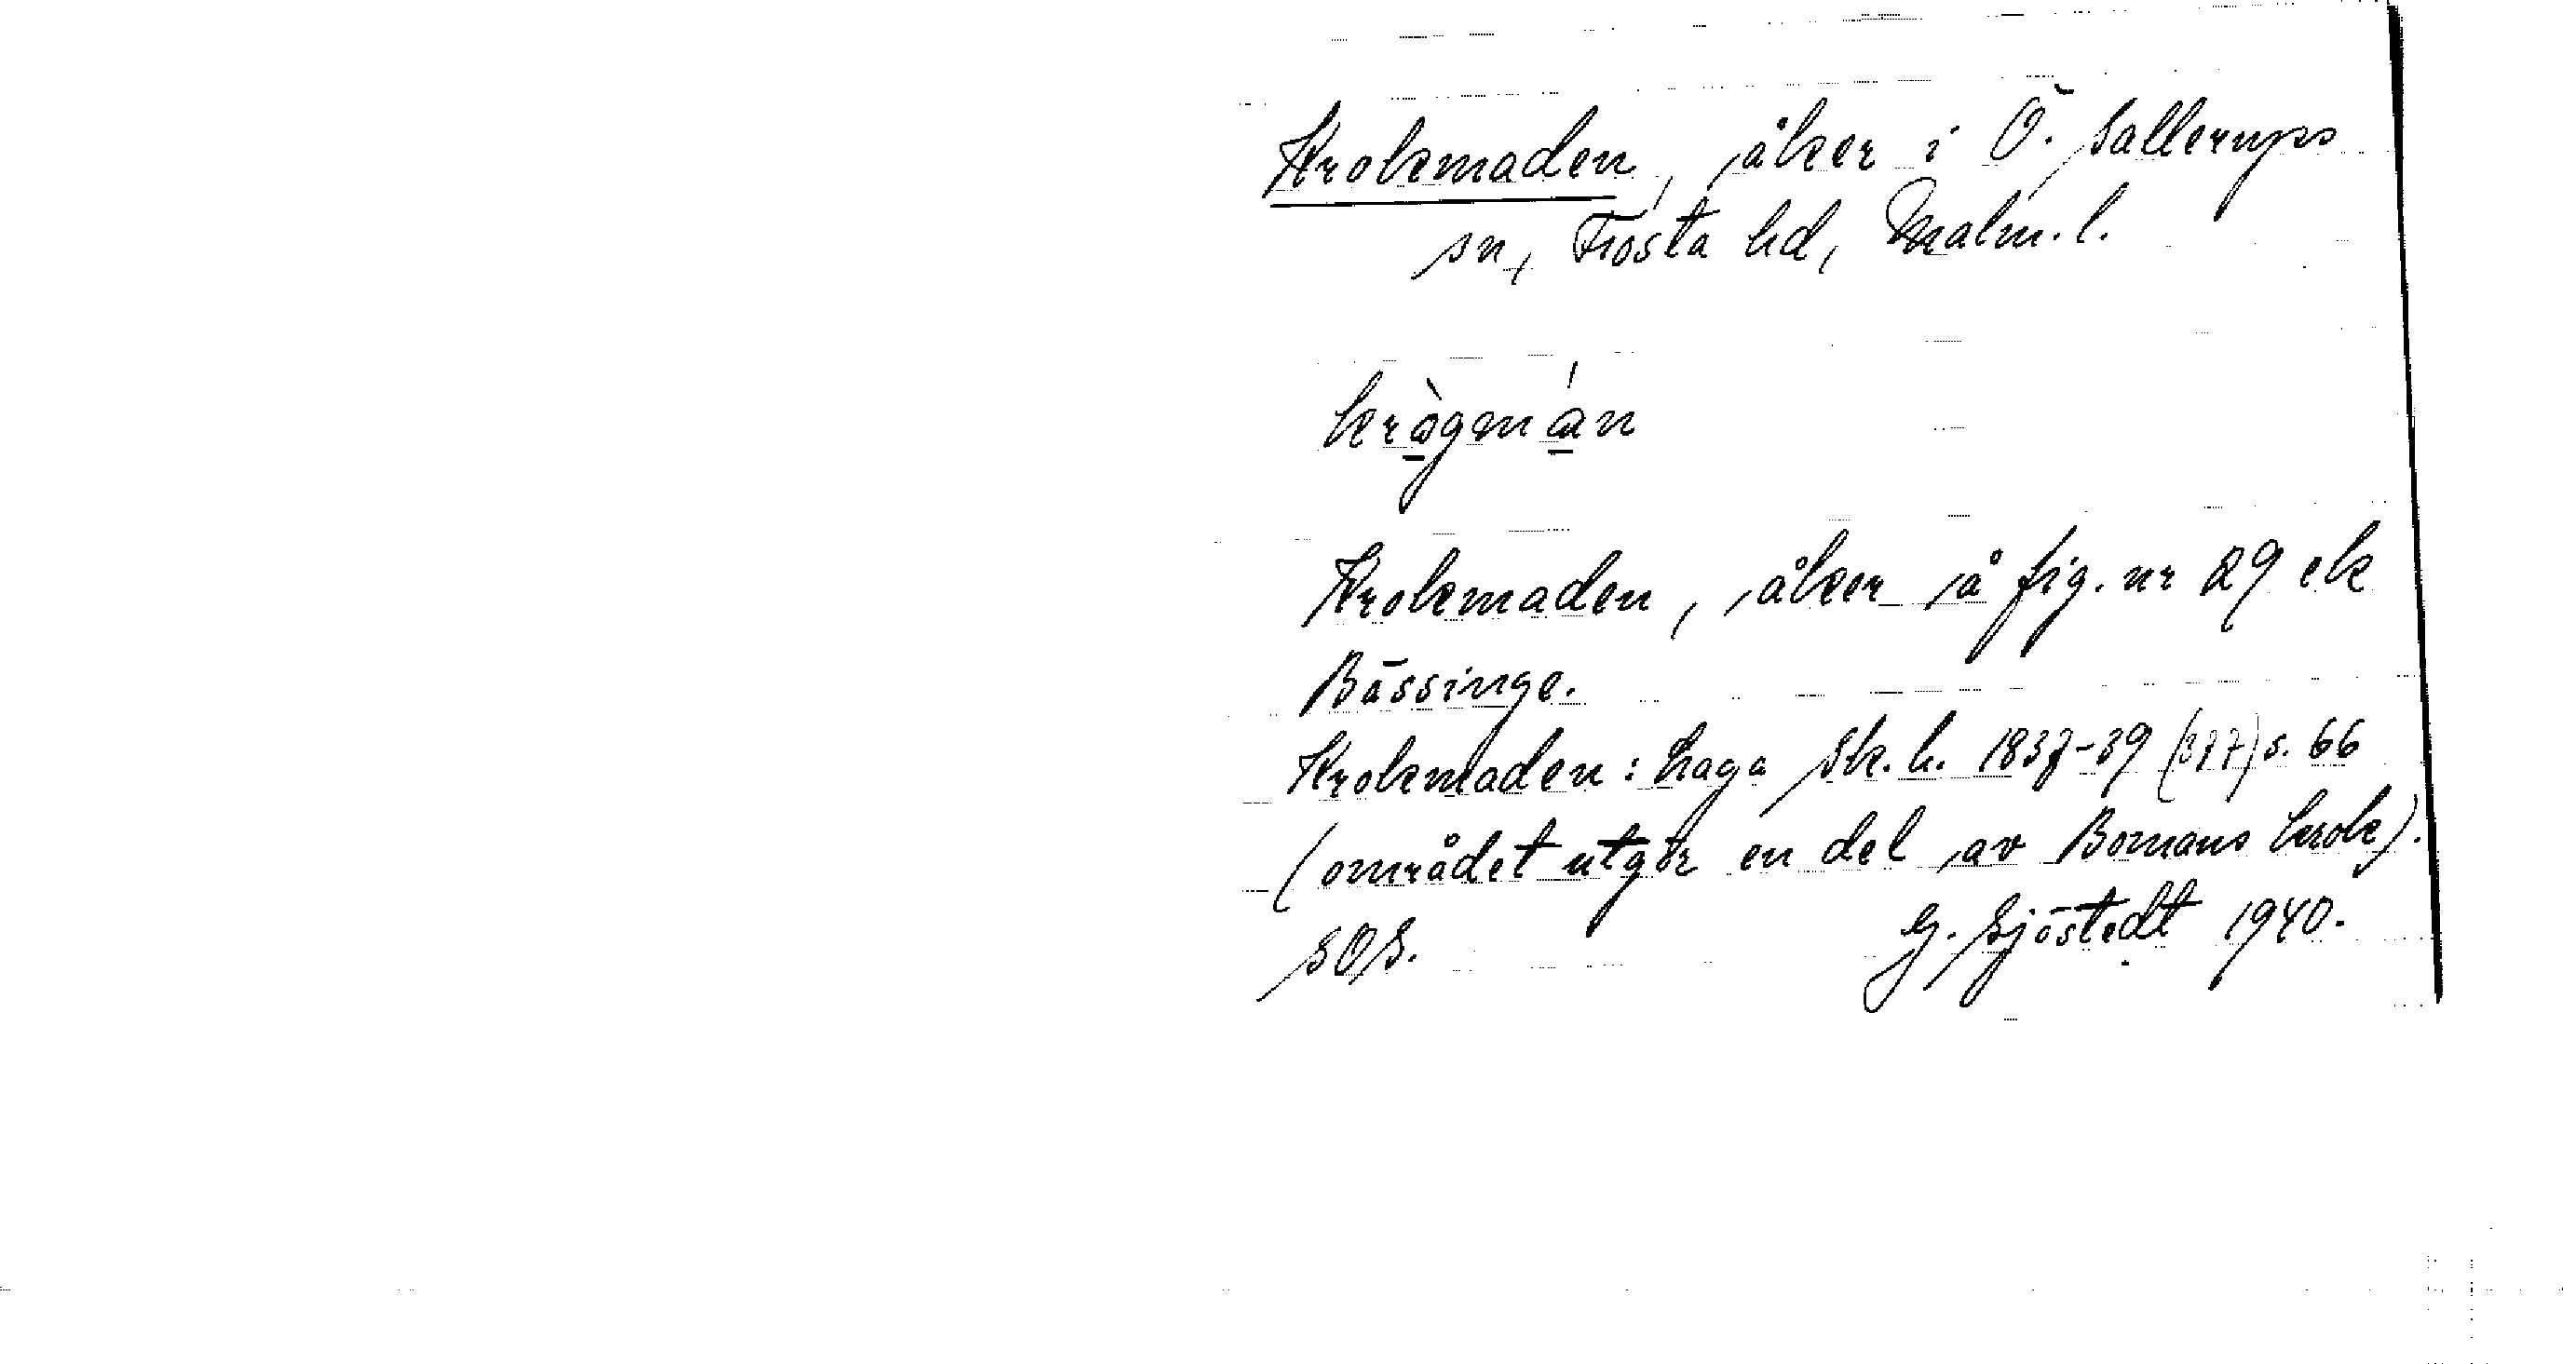 Krokmaden, åker i Ö. Sallerups
sn, Frosta hd, Malm. l.
krògmán
Krokmaden, åker å fig. nr 29 ek
Bässinge.
Krokmaden: Laga Sk. h. 1837-39 (377) s. 66
(området utgör en del av Bomans krok).
SOS. G. Sjöstedt 1940.